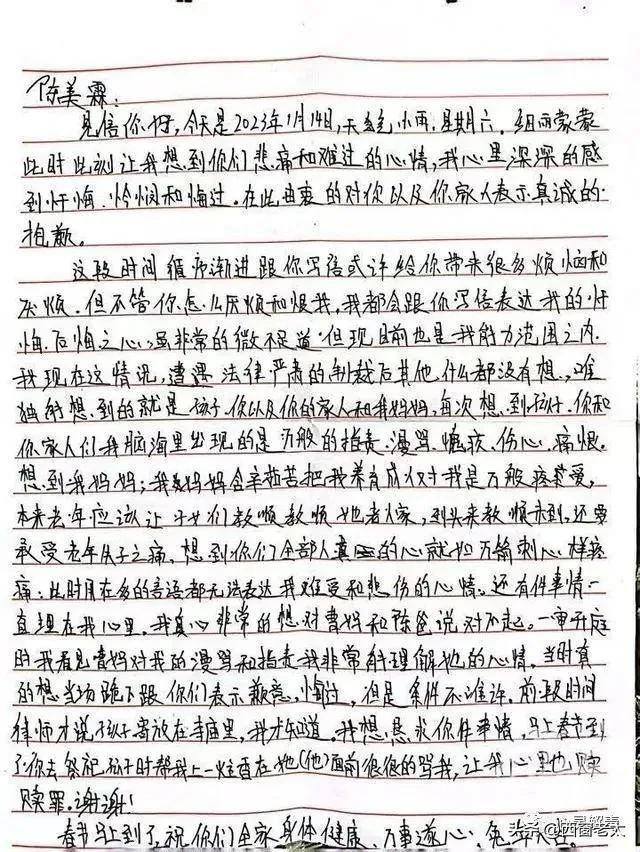 陈美霖:
见信你好,今天是2023年1月14日,天气小雨.星期六.细雨蒙蒙
此时此刻让我想到你们悲痛和难过的心情,我心里深深的感
到忏悔.怜悯和悔过.在此由衷的对你以及你家人表示真诚的
抱歉。
这段时间循序渐进跟你写信或许给你带来很多烦恼和
厌烦.但不管你怎么厌烦和恨我.我都会跟你写信表达我的忏
悔.后悔之心.虽非常的微不足道.但现目前也是我能力范围之内.
我现在这情况,遭遇 法律严肃的制裁后其他什么都没有想.唯
独能想到的就是孩子.你以及你的家人和我妈妈,每次想到孩子.你和
你家人们我脑海里出现的是万般的指责.漫骂.憔疾.伤心.痛恨.
想到我妈妈;我妈妈含辛茹苦把我养育成人对我是万般疼爱,
本来老年应该让子女们教顺教顺她老人家,到头来教顺未到,还要
承受老年失子之痛.想到你们全部人真的心就如万箭刺心样疼
痛.此时用在多的言语都无法表达我难受和悲伤的心情。还有件事情一
直埋在我心里.我真心非常的想对曹妈和陈爸说对不起。一审开庭
时我看见曹妈对我的漫骂和指责我非常能理解她的心情.当时真
的想当场跪下跟你们表示歉意,悔过,但是条件不准许.前段时间
律师才说孩子寄放在寺庙里,我才知道.我想恳求你件事情.马上春节到
了你去祭祀孩子时帮我上一炷香在她(他)面前狠狠的骂我,让我心里也赎
赎罪.谢谢!
春节马上到了.祝你们全家 身体健康.万事遂心.兔年大吉.
头条@西窗老太